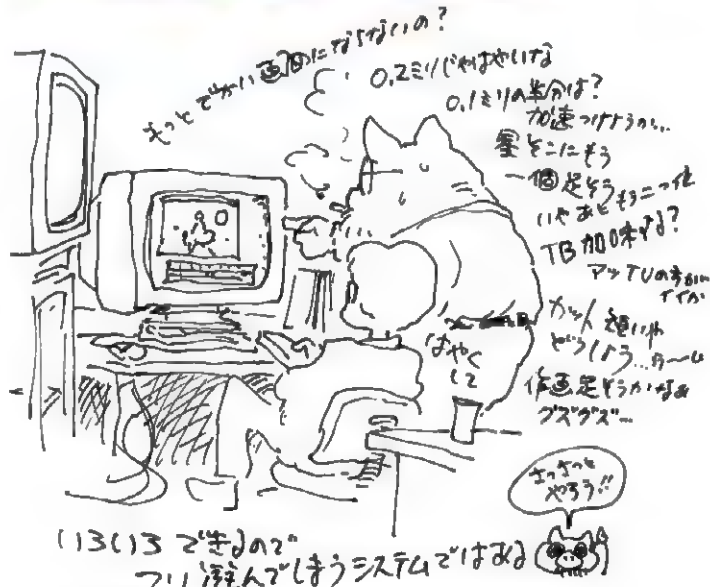 もっとでかい画面にならないの?
0.2ミリじゃはやいな
0.1ミリの半分は?
加速つけようか…
星そこにもう
一個足そう
いやあともう二つ位
TB加味する?
アッTUの方がいいか
カット短いや
どうしよう…ウ〜〜ム
作画足そうかなあ
グズグズー
はやく
して
さっさと
やろう!!
いろいろできるので
つい遊んでしまうシステムではある